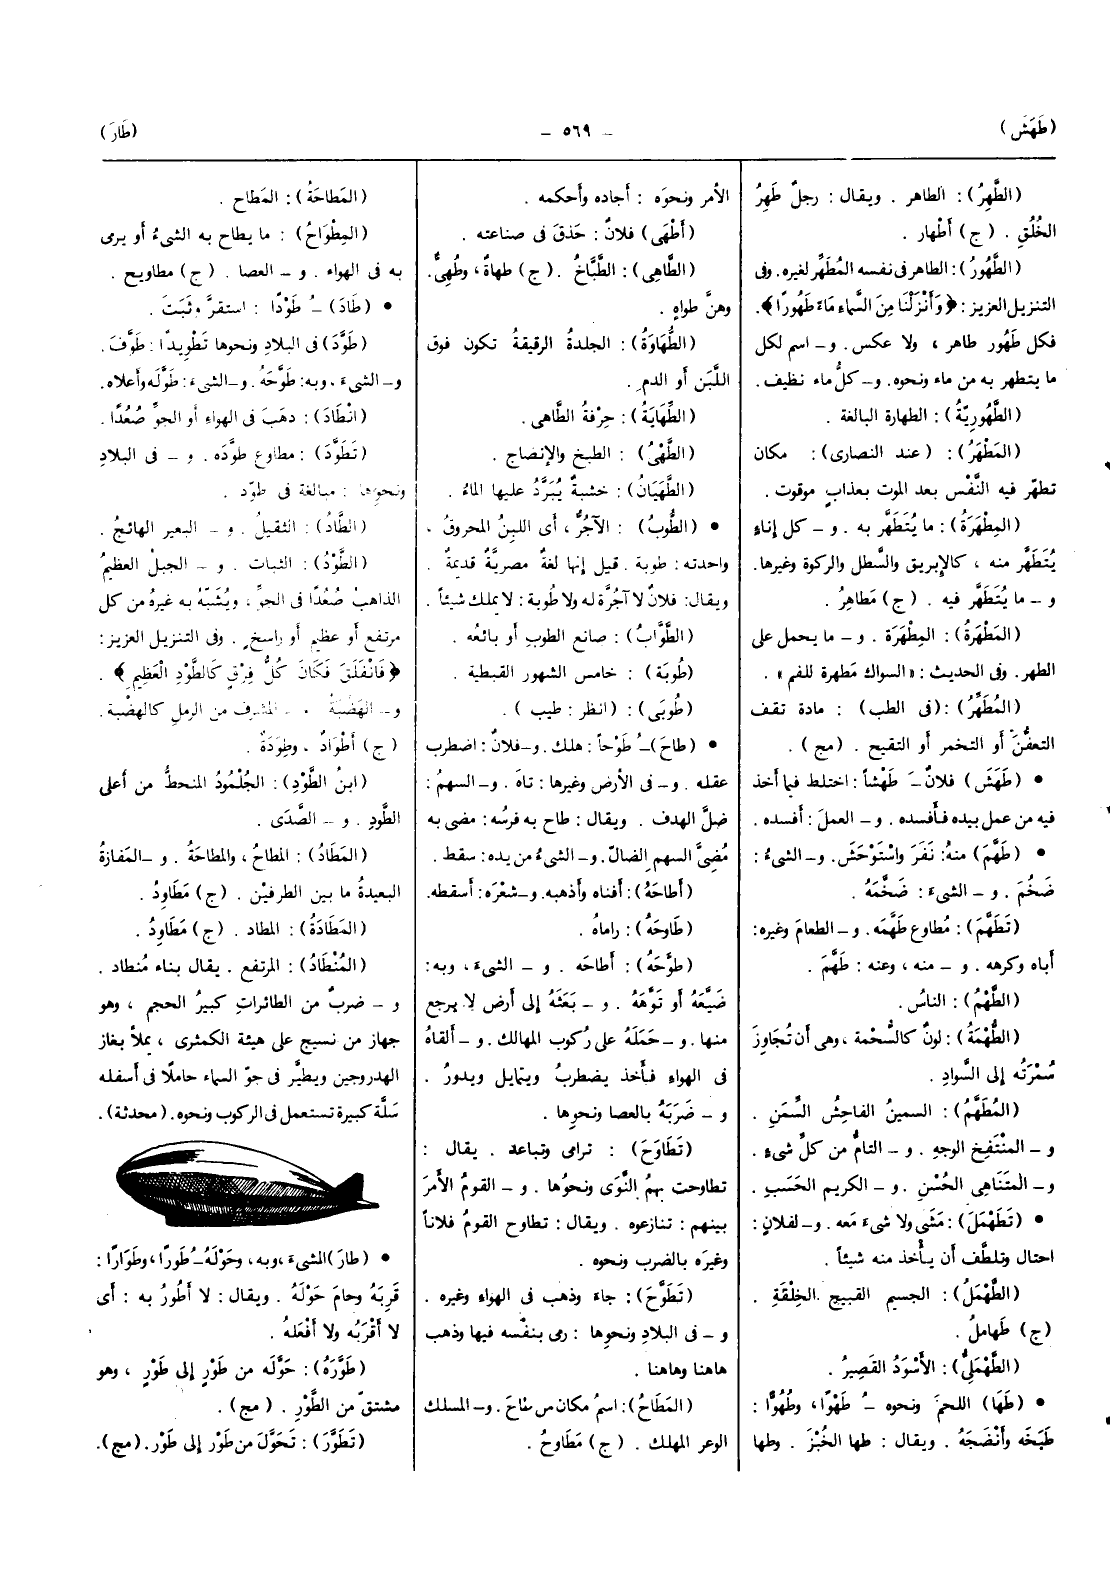 (طَهَشَ)
– ٥٦٩ –
(طَارَ)
(الطَّهِرُ) : الطاهر . ويقال : رجلٌ طَهِرُ
الخُلُقِ . (ج) أطْهار .
(الطَّهُورُ) : الطاهر فى نفسه المُطَهِّر لغيره. وفى
التنزيل العزيز : ﴿وَأَنْزَلْنَا مِنَ السَّماءِ مَاءً طَهُورًا﴾.
فكل طَهُور طاهر ، ولا عكس. و– اسم لكل
ما يتطهر به من ماء ونحوه. و– كلُّ ماء نظيف.
(الطَّهُوريّةُ) : الطهارة البالغة .
(المَطْهَرُ) : (عند النصارى) : مكان
تطهّر فيه النَّفْس بعد الموت بعذابٍ موقوت .
(المِطْهَرَةُ) : ما يُتَطَهَّر به . و– كل إناءٍ
يُتَطَهَّر منه ، كالإبريق والسَّطل والركوة وغيرها.
و– ما يُتَطَهَّر فيه . (ج) مَطاهِرُ .
(المَطْهَرَةُ) : المِطْهَرَة . و– ما يحمل على
الطهر. وفى الحديث : «السواك مَطهرة للفم» .
(المُطَهِّرُ) : (فى الطب) : مادة تقف
التعفُّنَ أو التخمر أو التقيح . (مج) .
• (طَهَشَ) فلانٌ–َ طَهْشاً : اختلط فيما أخذ
فيه من عمل بيده فأفسده . و– العملَ : أفسده .
• (طَهَّمَ) منهُ : نَفَرَ واسْتَوْحَشَ. و– الشىءُ :
ضَخُمَ . و– الشىءَ : ضَخَّمَهُ .
(تَطَهَّمَ) : مُطاوع طَهَّمَه. و– الطعامَ وغيره:
أباه وكرهه. و– منه ، وعنه : طَهَّمَ .
(الطَّهْمُ) : الناسُ .
(الطُّهْمَةُ) : لونٌ كالسُّحْمة ، وهى أن تُجَاوِزَ
سُمْرَتُه إلى السَّوادِ .
(المُطَهَّمُ) : السمينُ الفاحِشُ السِّمَنِ .
و– المنْتَفِخ الوجهِ . و– التامُّ من كلِّ شىءٍ .
و– المتَنَاهِى الحُسْنِ . و– الكريم الحَسَبِ .
• (تَطَهْمَلَ) : مَشَى ولا شىءَ مَعه. و– لفلانٍ :
احتال وتلطَّف أن يـأخذ منه شيئاً .
(الطَّهْمَلُ) : الجسيم القبيح الخِلْقَةِ .
(ج) طَهاملُ .
(الطَّهْمَلِىُّ) : الأسْوَدُ القَصِيرُ .
• (طَهَا) اللحمَ ونحوه –ُ طَهْوًا، وطُهُوًّا :
طَبَخَه وأَنْضَجَهُ . ويقال : طها الخُبْزَ . وطها
الأمر ونحوَه : أجاده وأحكمه .
(أَطْهَى) فلانٌ : حَذقَ فى صناعته .
(الطَّاهِى) : الطَّبَّاخُ . (ج) طهاةٌ، وطُهِىٌّ.
وهنَّ طواهٍ .
(الطُّهَاوَةُ) : الجلدةُ الرقيقةُ تكون فوق
اللَّبَن أو الدم .
(الطِّهَايَةُ) : حِرْفةُ الطَّاهى .
(الطَّهْىُ) : الطبخ والإنضاج .
(الطَّهَيَانُ) : خشبةٌ يُبَرَّدُ عليها الماءُ .
• (الطُّوبُ) : الآجُرُّ ، أى اللبِنُ المحروقُ ،
واحدته : طوبة . قيل إنها لغةٌ مصريَّةٌ قديمةٌ .
ويقال: فلانٌ لا آجُرَّة له ولا طُوبة: لا يملك شيئاً .
(الطَّوَّابُ) : صانع الطوبِ أو بائعُه .
(طُوبَة) : خامس الشهور القبطية .
(طُوبَى) : (انظر : طيب) .
• (طاحَ)–ُ طَوْحاً : هلك. و– فلانٌ : اضطرب
عقله . و– فى الأرض وغيرها : تاهَ . و– السهمُ :
ضلَّ الهدف . ويقال : طاح به فرسُه : مضى به
مُضِىَّ السهم الضالّ. و– الشىءُ من يده: سقط .
(أطاحَهُ) : أفناه وأذهبه. و– شعْرَه: أسقطه.
(طَاوحَهُ) : راماهُ .
(طوَّحَهُ) : أطاحَه . و– الشىءَ ، وبه:
ضَيَّعَهُ أو تَوَّهَهُ . و– بَعَثَهُ إلى أرض لا يرجع
منها. و– حَمَلَهُ على رُكوب المهالك. و– ألقاهُ
فى الهواءِ فـأخذ يضطربُ ويتمايل ويدورُ .
و– ضَرَبَهُ بالعصا ونحوها .
(تَطَاوَحَ) : ترامى وتباعد . يقال :
تطاوحت بهمُ النَّوَى ونحوُها . و– القومُ الأمرَ
بينهم : تنازعوه . ويقال : تطاوح القومُ فلاناً
وغيرَه بالضرب ونحوه .
(تَطَوَّحَ) : جاءَ وذهب فى الهواءِ وغيره .
و– فى البلادِ ونحوها : رمى بنفْسه فيها وذهب
هاهنا وهاهنا .
(المَطَاحُ) : اسمُ مكان من طاحَ . و– المسلك
الوعر المهلك . (ج) مَطَاوحُ .
(المَطَاحَةُ) : المَطاح .
(المِطْوَاحُ) : ما يطاح به الشىءُ أو يرمى
به فى الهواء . و– العصا . (ج) مطاويح .
• (طَادَ) –ُ طَوْدًا : استقرَّ وثَبَتَ .
(طَوَّدَ) فى البلادِ ونحوها تَطْوِيدًا : طَوَّفَ.
و– الشىءَ ، وبه: طَوَّحَهُ. و– الشىءَ: طَوَّلَه وأعلاه.
(انْطَادَ) : ذهَبَ فى الهواءِ أو الجوِّ صُعُدًا .
(تَطَوَّدَ) : مطاوع طوَّدَه. و– فى البلادِ
ونحوها : مبالغة فى طوّد .
(الطَّادُ) : الثقيلُ . و– البعير الهائجُ .
(الطَّوْدُ) : الثبات . و– الجبلُ العظيمُ
الذاهبُ صُعُدًا فى الجوِّ . ويُشبَّهُ به غيرُهُ من كل
مرتفع أو عظيم أو راسخٍ . وفى التنزيل العزيز:
﴿فَانْفَلَقَ فَكَانَ كُلُّ فِرْقٍ كَالطَّوْدِ الْعَظِيمِ﴾ .
و– الهَضْبَةُ . و– المشرف من الرملِ كالهضْبة.
(ج) أطْوَادٌ ، وطِوَدَةٌ .
(ابنُ الطَّوْدِ) : الجُلْمُودُ المنحطُّ من أعلى
الطَّودِ . و– الصَّدَى .
(المَطَادُ) : المطاحُ ، والمطاحَةُ . و– المَفازةُ
البعيدةُ ما بين الطرفيْن . (ج) مَطَاوِدُ .
(المَطَادَةُ) : المطاد . (ج) مَطَاوِدُ .
(المُنْطَادُ) : المرتفع . يقال بناء مُنطاد .
و– ضربٌ من الطائراتِ كبيرُ الحجم ، وهو
جهاز من نسيج على هيئة الكمثرى ، يملأ بغاز
الهدروجين ويطيَّر فى جوّ السماء حاملًا فى أسفله
سَلَّة كبيرة تستعمل فى الركوب ونحوه. (محدثة) .
• (طارَ) الشىءَ ، وبه، وحَوْلَهُ–ُ طَورًا، وطَوَارًا :
قَرِبَهُ وحامَ حَوْلَهُ . ويقال : لا أَطُورُ به : أى
لا أقْرَبُه ولا أفْعَلهُ .
(طَوَّرَهُ) : حَوَّلَه من طَوْرٍ إلى طَوْرٍ ، وهو
مشتقٌّ من الطَّوْرِ . (مج) .
(تَطَوَّرَ) : تَحَوَّلَ من طَوْر إلى طَوْر. (مج) .